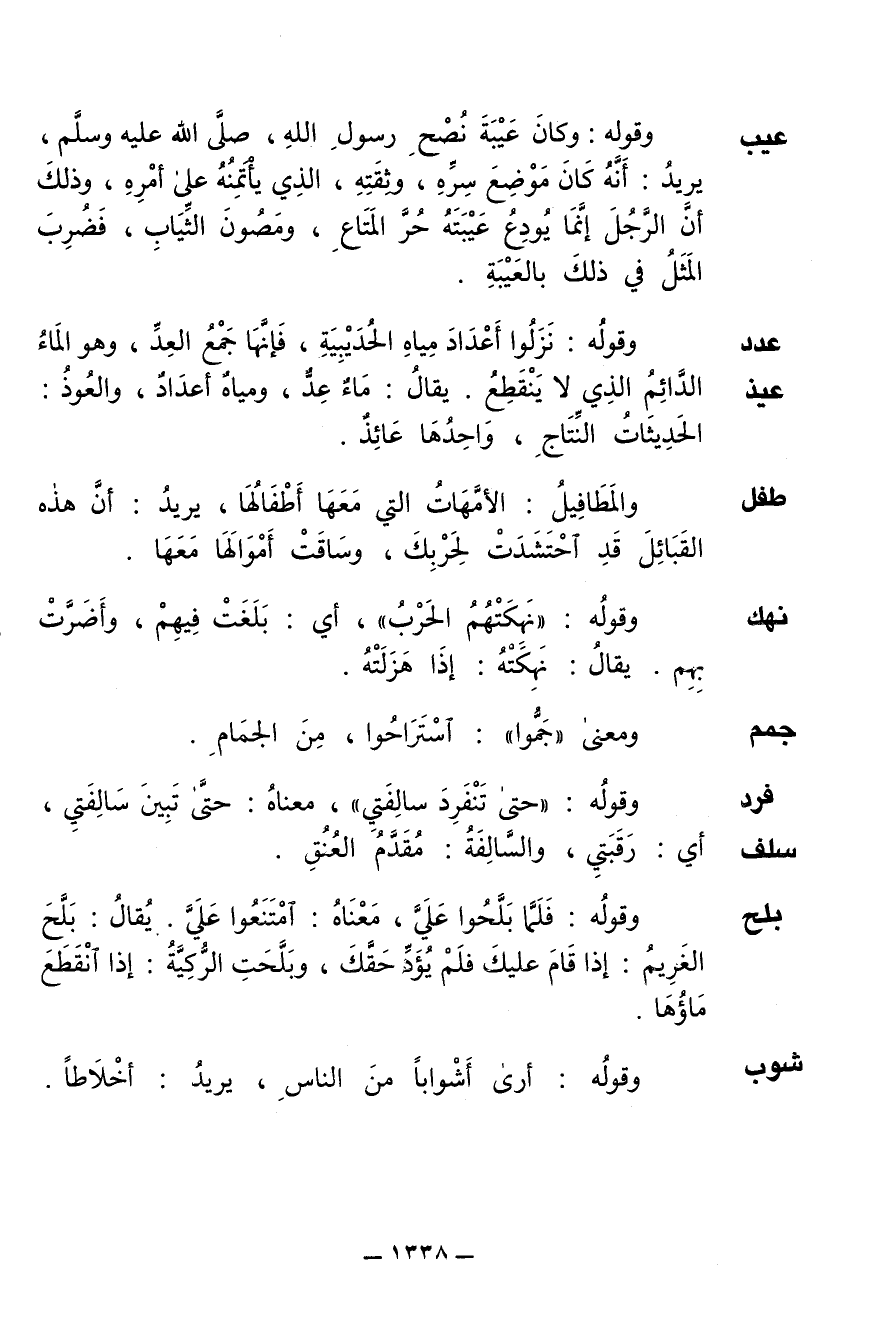 عيب وقوله : وكانَ عَيْبَةَ نُصْحِ رسولِ اللهِ ، صلَّى الله عليه وسلَّم ،
يريدُ : أَنَّهُ كَانَ مَوْضِعَ سِرِّهِ ، وثِقَتِهِ ، الذِي يأْتَمِنُهُ علىٰ أمْرِهِ ، وذلكَ
أنَّ الرَّجُلَ إنَّمَا يُودِعُ عَيْبَتَهُ حُرَّ المَتَاعِ ، ومَصُونَ الثِّيَابِ ، فَضُرِبَ
المَثَلُ في ذلكَ بالعَيْبَةِ .
عدد وقولُه : نَزَلُوا أَعْدَادَ مِياهِ الحُدَيْبِيَةِ ، فَإنَّهَا جَمْعُ العِدِّ ، وهو المَاءُ
عيذ الدَّائِمُ الذِي لا يَنْقَطِعُ . يقالُ : مَاءٌ عِدٌّ ، ومياهٌ أعدَادٌ ، والعُوذُ :
الحَدِيثَاتُ النِّتَاجِ ، وَاحِدُهَا عَائِذٌ .
طفل والمَطَافِيلُ : الأمَّهَاتُ التي مَعَهَا أَطْفَالُهَا ، يريدُ : أنَّ هذٰه
القَبَائِلَ قَدِ ٱحْتَشَدَتْ لِحَرْبِكَ ، وسَاقَتْ أَمْوَالَهَا مَعَهَا .
نهك وقولُه : «نَهِكَتْهُمُ الحَرْبُ» ، أي : بَلَغَتْ فِيهِمْ ، وأَضَرَّتْ
بِهِم . يقالُ : نَهِكَتْهُ : إذَا هَزَلَتْهُ .
جمم ومعنىٰ «جَمُّوا» : ٱسْتَرَاحُوا ، مِنَ الجمَامِ .
فرد وقولُه : «حتىٰ تَنْفَرِدَ سالِفَتِي» ، معناهُ : حتَّىٰ تَبِينَ سَالِفَتِي ،
سلف أي : رَقَبَتِي ، والسَّالِفَةُ : مُقَدَّمُ العُنُقِ .
بلح وقولُه : فَلَمَّا بَلَّحُوا عَلَيَّ ، مَعْنَاهُ : ٱمْتَنَعُوا عَلَيَّ . يُقالُ : بَلَّحَ
الغَرِيمُ : إذا قَامَ عليكَ فلَمْ يُؤَدِّ حَقَّكَ ، وبَلَّحَتِ الرُّكِيَّةُ : إذا ٱنْقَطَعَ
مَاؤُهَا .
شوب وقولُه : أرىٰ أَشْواباً منَ الناسِ ، يريدُ : أخْلَاطاً .
— ١٣٣٨ —